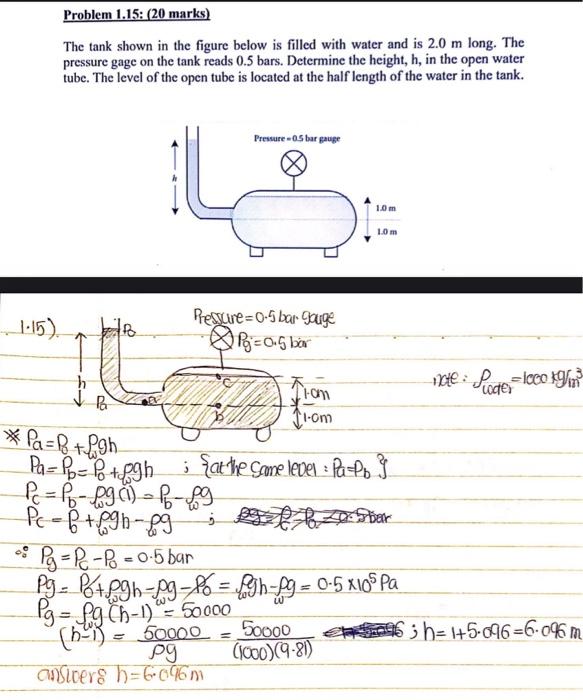 Problem 1.15: (20 marks)
The tank shown in the figure below is filled with water and is 2.0 m long. The
pressure gage on the tank reads 0.5 bars. Determine the height, h, in the open water
tube. The level of the open tube is located at the half length of the water in the tank.
Pressure = 0.5 bar gauge
h
1.0 m
1.0 m
1.15)
Pressure = 0.5 bar gauge
Po
Pg = 0.5 bar
note : ρwater = 1000 kg/m³
c
h
1.0m
Pa
a
b
1.0m
* Pa = Po + ρwgh
Pa = Pb = Po + ρwgh ; {at the same level : Pa = Pb}
Pc = Pb - ρwg(1) = Pb - ρwg
Pc = Po + ρwgh - ρwg ;
∴ Pg = Pc - Po = 0.5 bar
Pg = Po + ρwgh - ρwg - Po = ρwgh - ρwg = 0.5 x10⁵ Pa
Pg = ρwg (h-1) = 50000
(h-1) = 50000/ρg = 50000/(1000)(9.81) ; h = 1+5.096 = 6.096 m
answer: h = 6.096 m